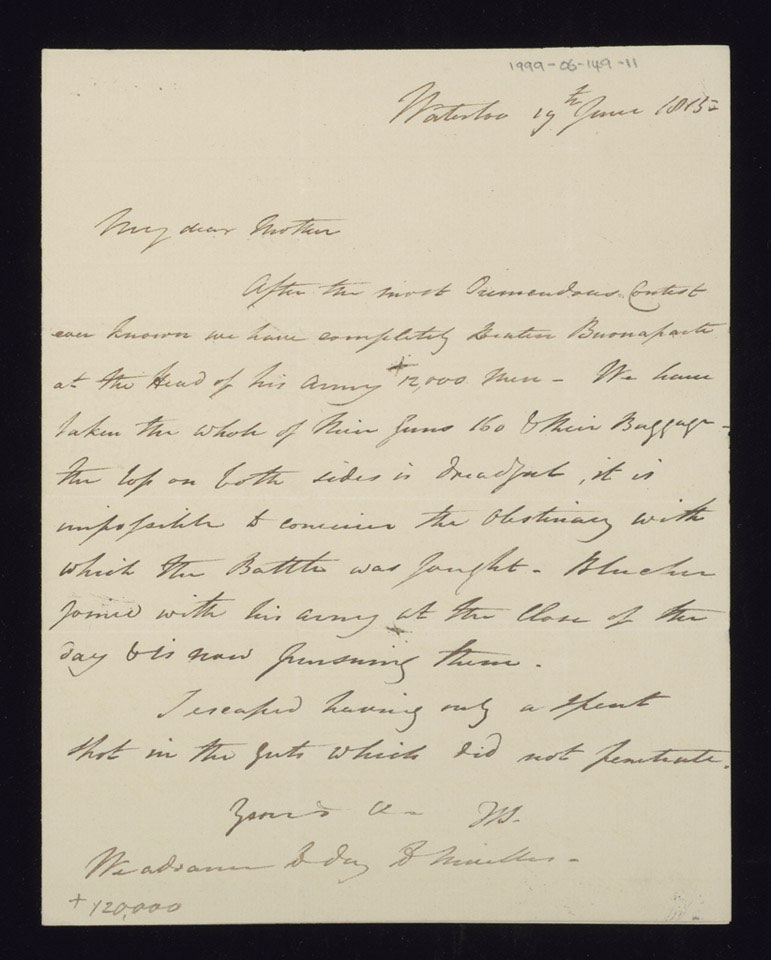 1999-06-149-11
Waterloo 19th June 1815
My dear Mother
After the most Tremendous Contest
ever known we have completely Beaten Buonaparte
at the Head of his Army + 12,000 Men - We have
taken the whole of their Guns 160 & their Baggage -
the loss on both sides is dreadful, it is
impossible to conceive the Obstinacy with
which the Battle was fought - Blucher
Joined with his army at the Close of the
day & is now pursuing them.
I escaped having only a spent
shot in the guts which did not penetrate.
Yours &c
We advance to day to Nivelles -
+ 120,000